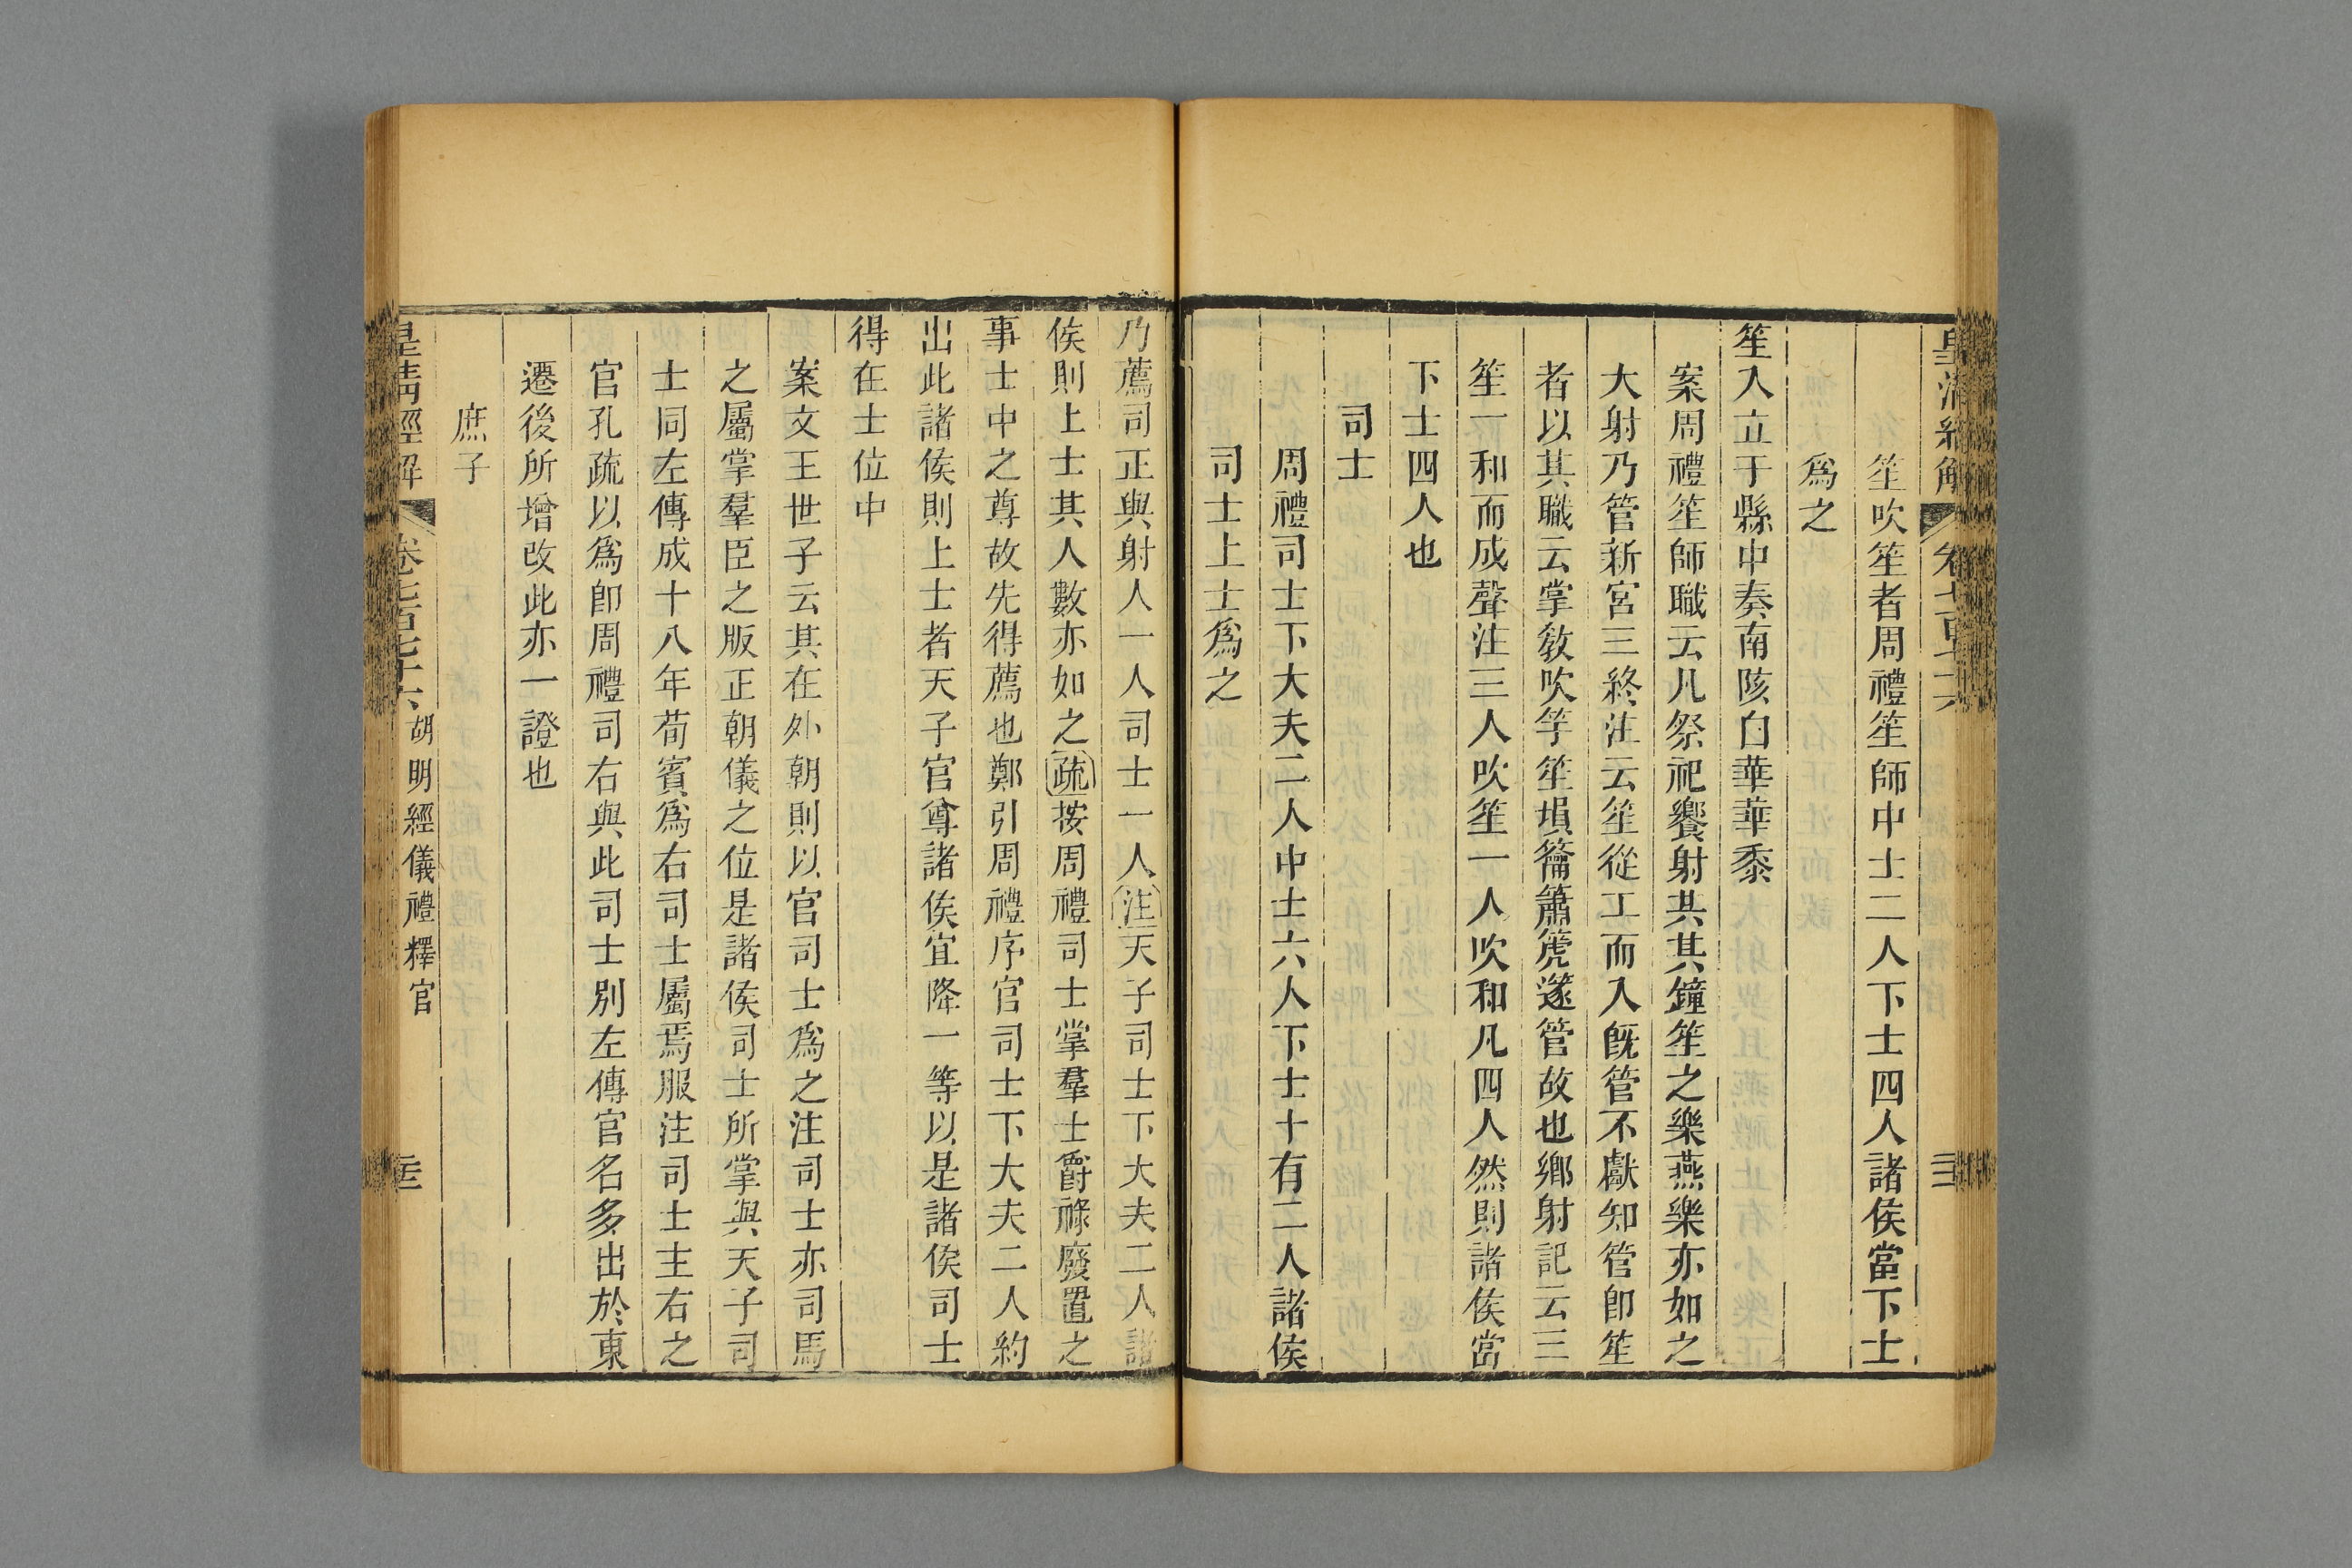 皇清經解 卷七百七十六
笙吹笙者周禮笙師中士二人下士四人諸侯當下士
爲之
笙入立于縣中奏南陔白華華黍
案周禮笙師職云凡祭祀饗射共其鐘笙之樂燕樂亦如之
大射乃管新宮三終注云笙從工而入旣管不獻知管卽笙
者以其職云掌敎吹竽笙塤籥簫篪篴管故也鄉射記云三
笙一和而成聲注三人吹笙一人吹和凡四人然則諸侯當
下士四人也
司士
周禮司士下大夫二人中士六人下士十有二人諸侯
司士上士爲之
乃薦司正與射人一人司士一人注天子司士下大夫二人諸
侯則上士其人數亦如之疏按周禮司士掌羣士爵祿廢置之
事士中之尊故先得薦也鄭引周禮序官司士下大夫二人約
出此諸侯則上士者天子官尊諸侯宜降一等以是諸侯司士
得在士位中
案文王世子云其在外朝則以官司士爲之注司士亦司馬
之屬掌羣臣之版正朝儀之位是諸侯司士所掌與天子司
士同左傳成十八年荀賓爲右司士屬焉服注司士主右之
官孔疏以爲卽周禮司右與此司士別左傳官名多出於東
遷後所增改此亦一證也
庶子
皇清經解 卷七百七十六 胡明經儀禮釋官